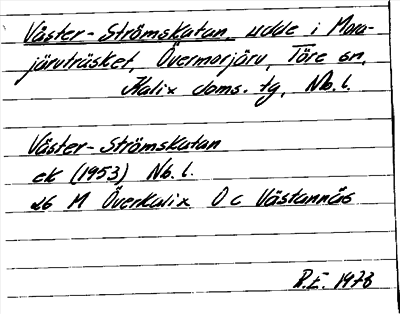 Väster-Strömskatan udde i Mora-
järvträsket, Övermorjärv, Töre sn,
Kalix doms. tg, Nb. l.
Väster-Strömskatan
ek (1953) Nb. l.
26 M Överkalix O c Västannäs
R.E. 1973